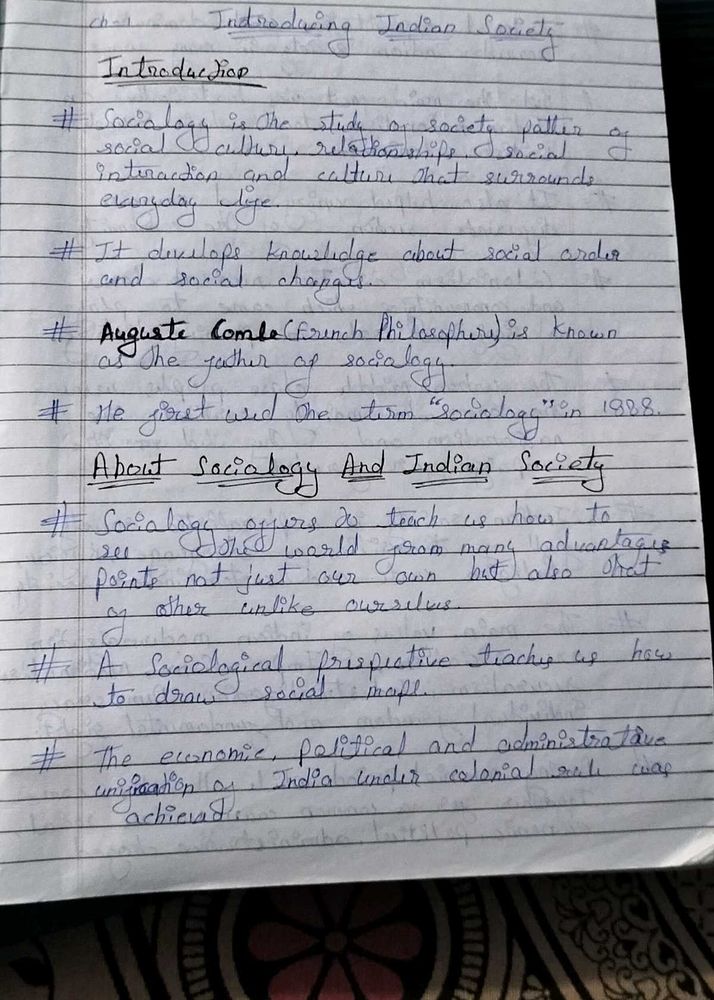 ch-1 Indroducing Indian Society
Introduction
# Socialogy is the study of society patter of
social culture, relationships, social
interaction and culture that surrounds
everyday life.
# It develops knowledge about social order
and social changes.
# Auguste Comte (French Philosophers) is known
as the father of socialogy.
# He first used the term "sociology" in 1988.
About Socialogy And Indian Society
# Socialogy offers to teach us how to
see the world from many advantages
points not just our own but also that
of other unlike ourselves.
# A Sociological prispective teaches us how
to draw social maps.
# The economic, political and administrative
unification of India under colonial rule was
achieved.